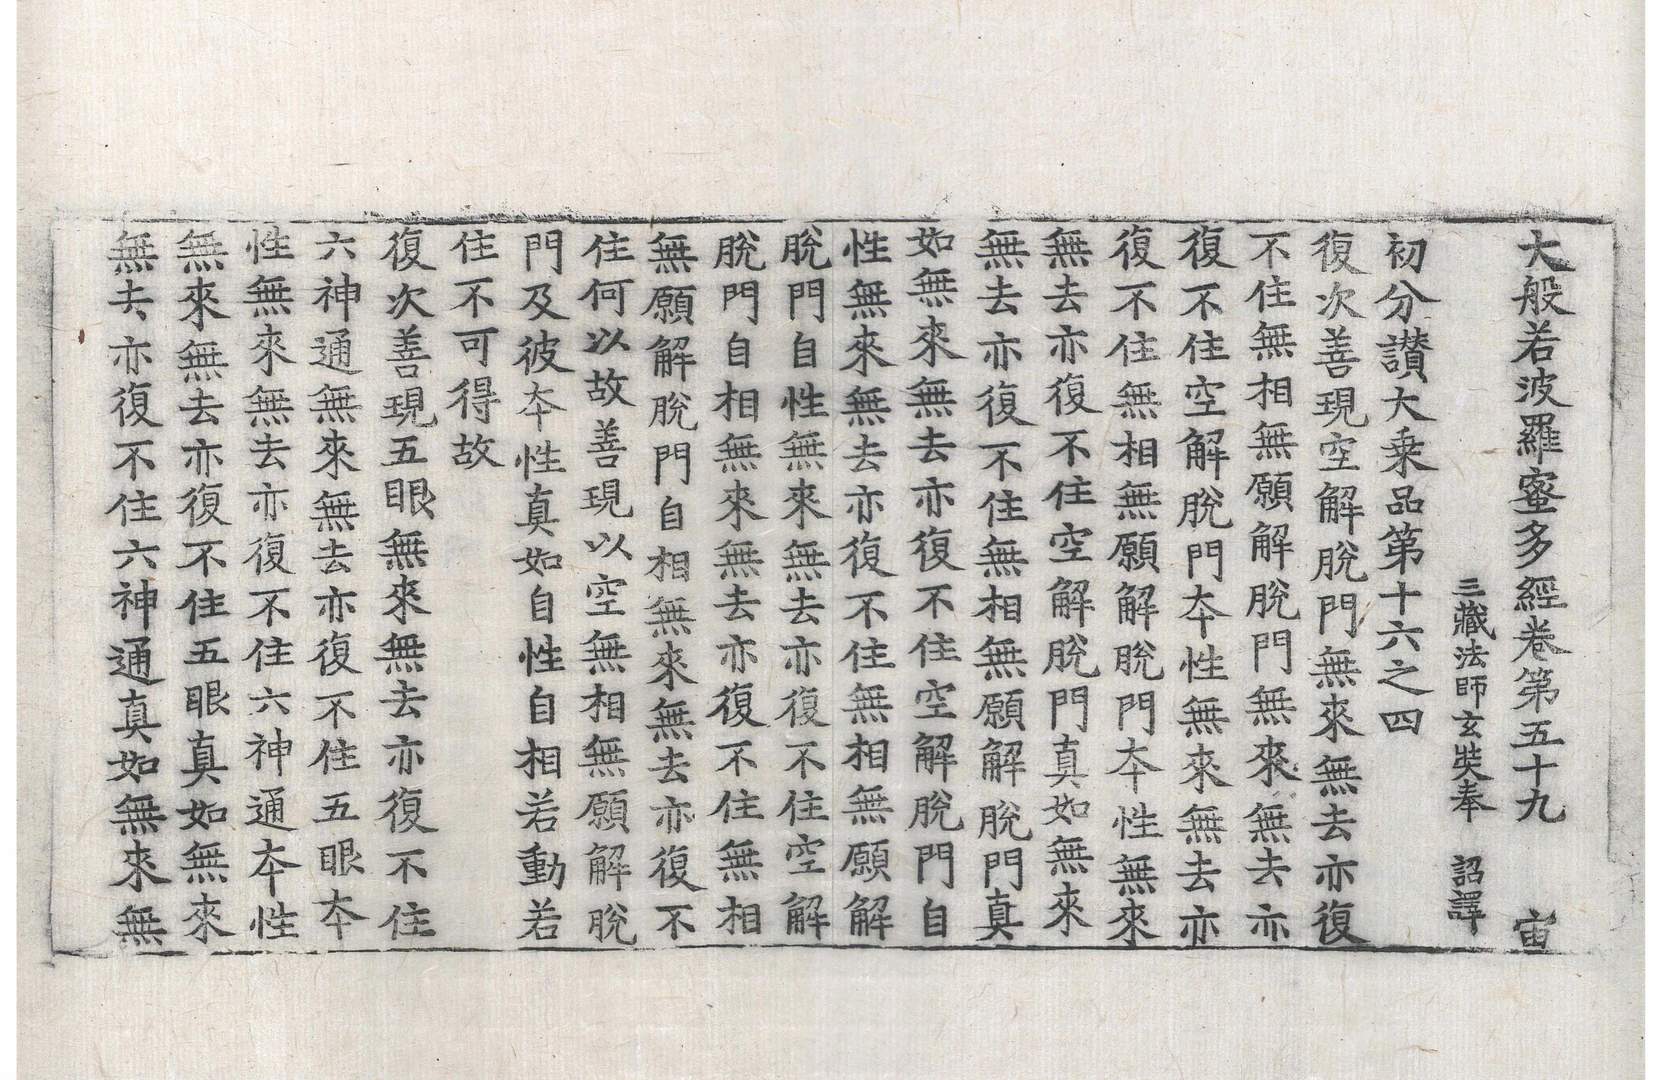 大般若波羅蜜多經卷第五十九 宙
三藏法師玄奘奉 詔譯
初分讃大乗品第十六之四
復次善現空解脫門無來無去亦復
不住無相無願解脫門無來無去亦
復不住空解脫門夲性無來無去亦
復不住無相無願解脫門夲性無來
無去亦復不住空解脫門真如無來
無去亦復不住無相無願解脫門真
如無來無去亦復不住空解脫門自
性無來無去亦復不住無相無願解
脫門自性無來無去亦復不住空解
脫門自相無來無去亦復不住無相
無願解脫門自相無來無去亦復不
住何以故善現以空無相無願解脫
門及彼夲性真如自性自相若動若
住不可得故
復次善現五眼無來無去亦復不住
六神通無來無去亦復不住五眼夲
性無來無去亦復不住六神通夲性
無來無去亦復不住五眼真如無來
無去亦復不住六神通真如無來無